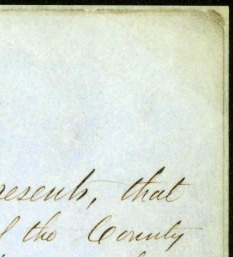 resents, that
the County